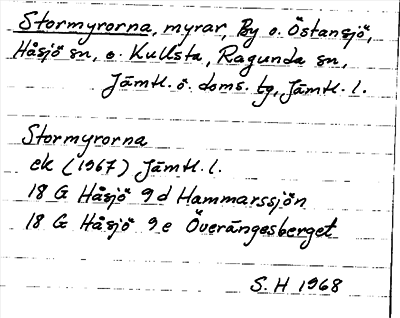 Stormyrorna, myrar, By o. Östansjö,
Håsjö sn, o. Kullsta, Ragunda sn,
Jämtl. ö. doms. tg, Jämtl. l.
Stormyrorna
ek (1967) Jämtl. l.
18 G Håsjö 9 d Hammarssjön
18 G Håsjö 9 e Överängesberget
S. H 1968